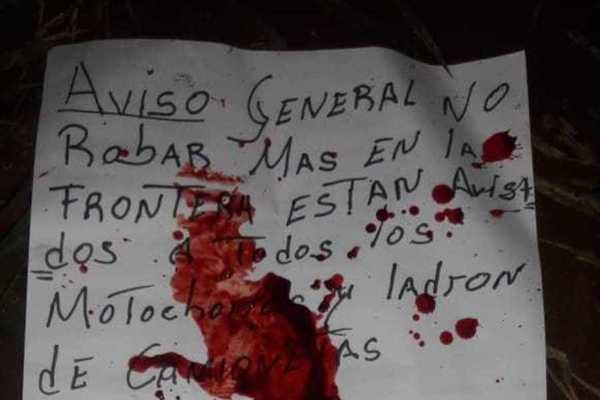 AVISO GENERAL NO
RobAR MAS EN la
FRONTERA ESTAN AVISA
dos A Todos los
Motochorros y ladron
dE CAMIONETAS